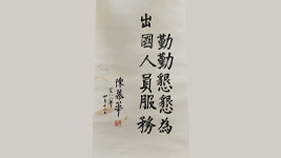 勤勤懇懇為
出國人員服務
陳慕華